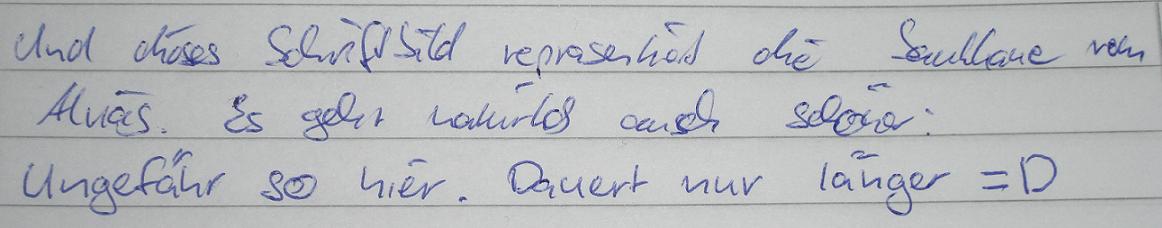 Und dieses Schriftbild repräsentiert die Sauklaue von
Alväs. Es geht natürlich auch schöner:
Ungefähr so hier. Dauert nur länger =D